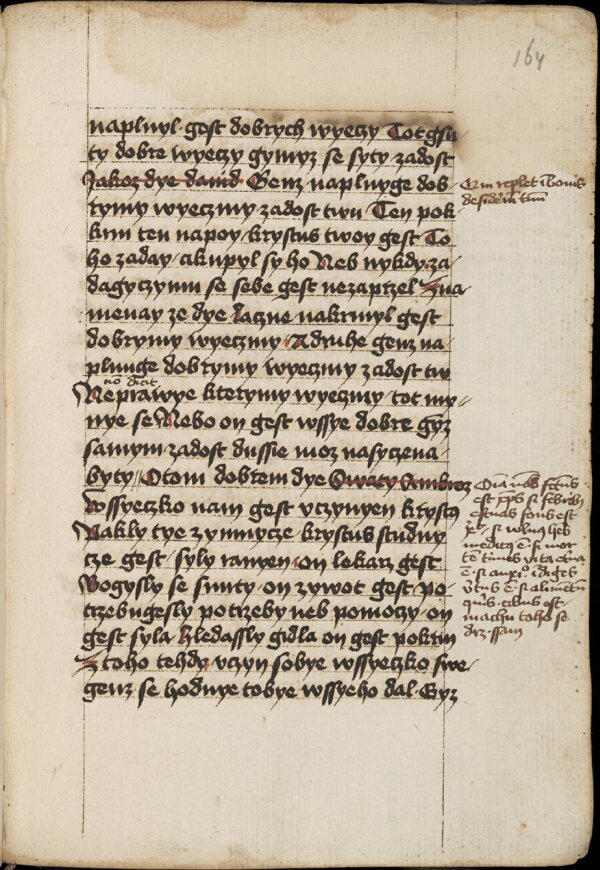 164
naplnyl gest dobrych wyeczy Tot gsu
ty dobre wyeczy gymyz se syty zadost
Jakoz dye dauid Genz naplnyge dob
rymy wyeczmy zadost twu Ten pok
krm ten napoy krystus twoy gest To
ho zaday akupyl sy ho Neb nykdy za
dagyczymu se sebe gest nezaprzel Zna
menay ze dye laczne nakrmyl gest
dobrymy wyeczmy Adruhe genz na
plnuge dobrymy wyeczmy zadost tw
no dicit
Neprawye kterymy wyeczmy tot my
nye se Nebo on gest wssye dobre gymz
samym zadost dussie moz nasyczena
byty Otom dobrem dye Swaty Ambroz
Wssyeczko nam gest vczynyen krystus
Pakly tye zymnycze krystus studny
cze gest syly ranyen on lekarz gest
Bogysly se smrty on zywot gest po
trzebugesly potrzeby neb pomoczy on
gest syla hledassly gidla on gest pokrm
Z toho tehdy vczyn sobye wssyeczko swe
genz se hodnye tobye wssyeho dal Gyz
Qui replet i bonis
desideriu tuu
est xps si febrib
estuas fons est
tes times vita
cibus est